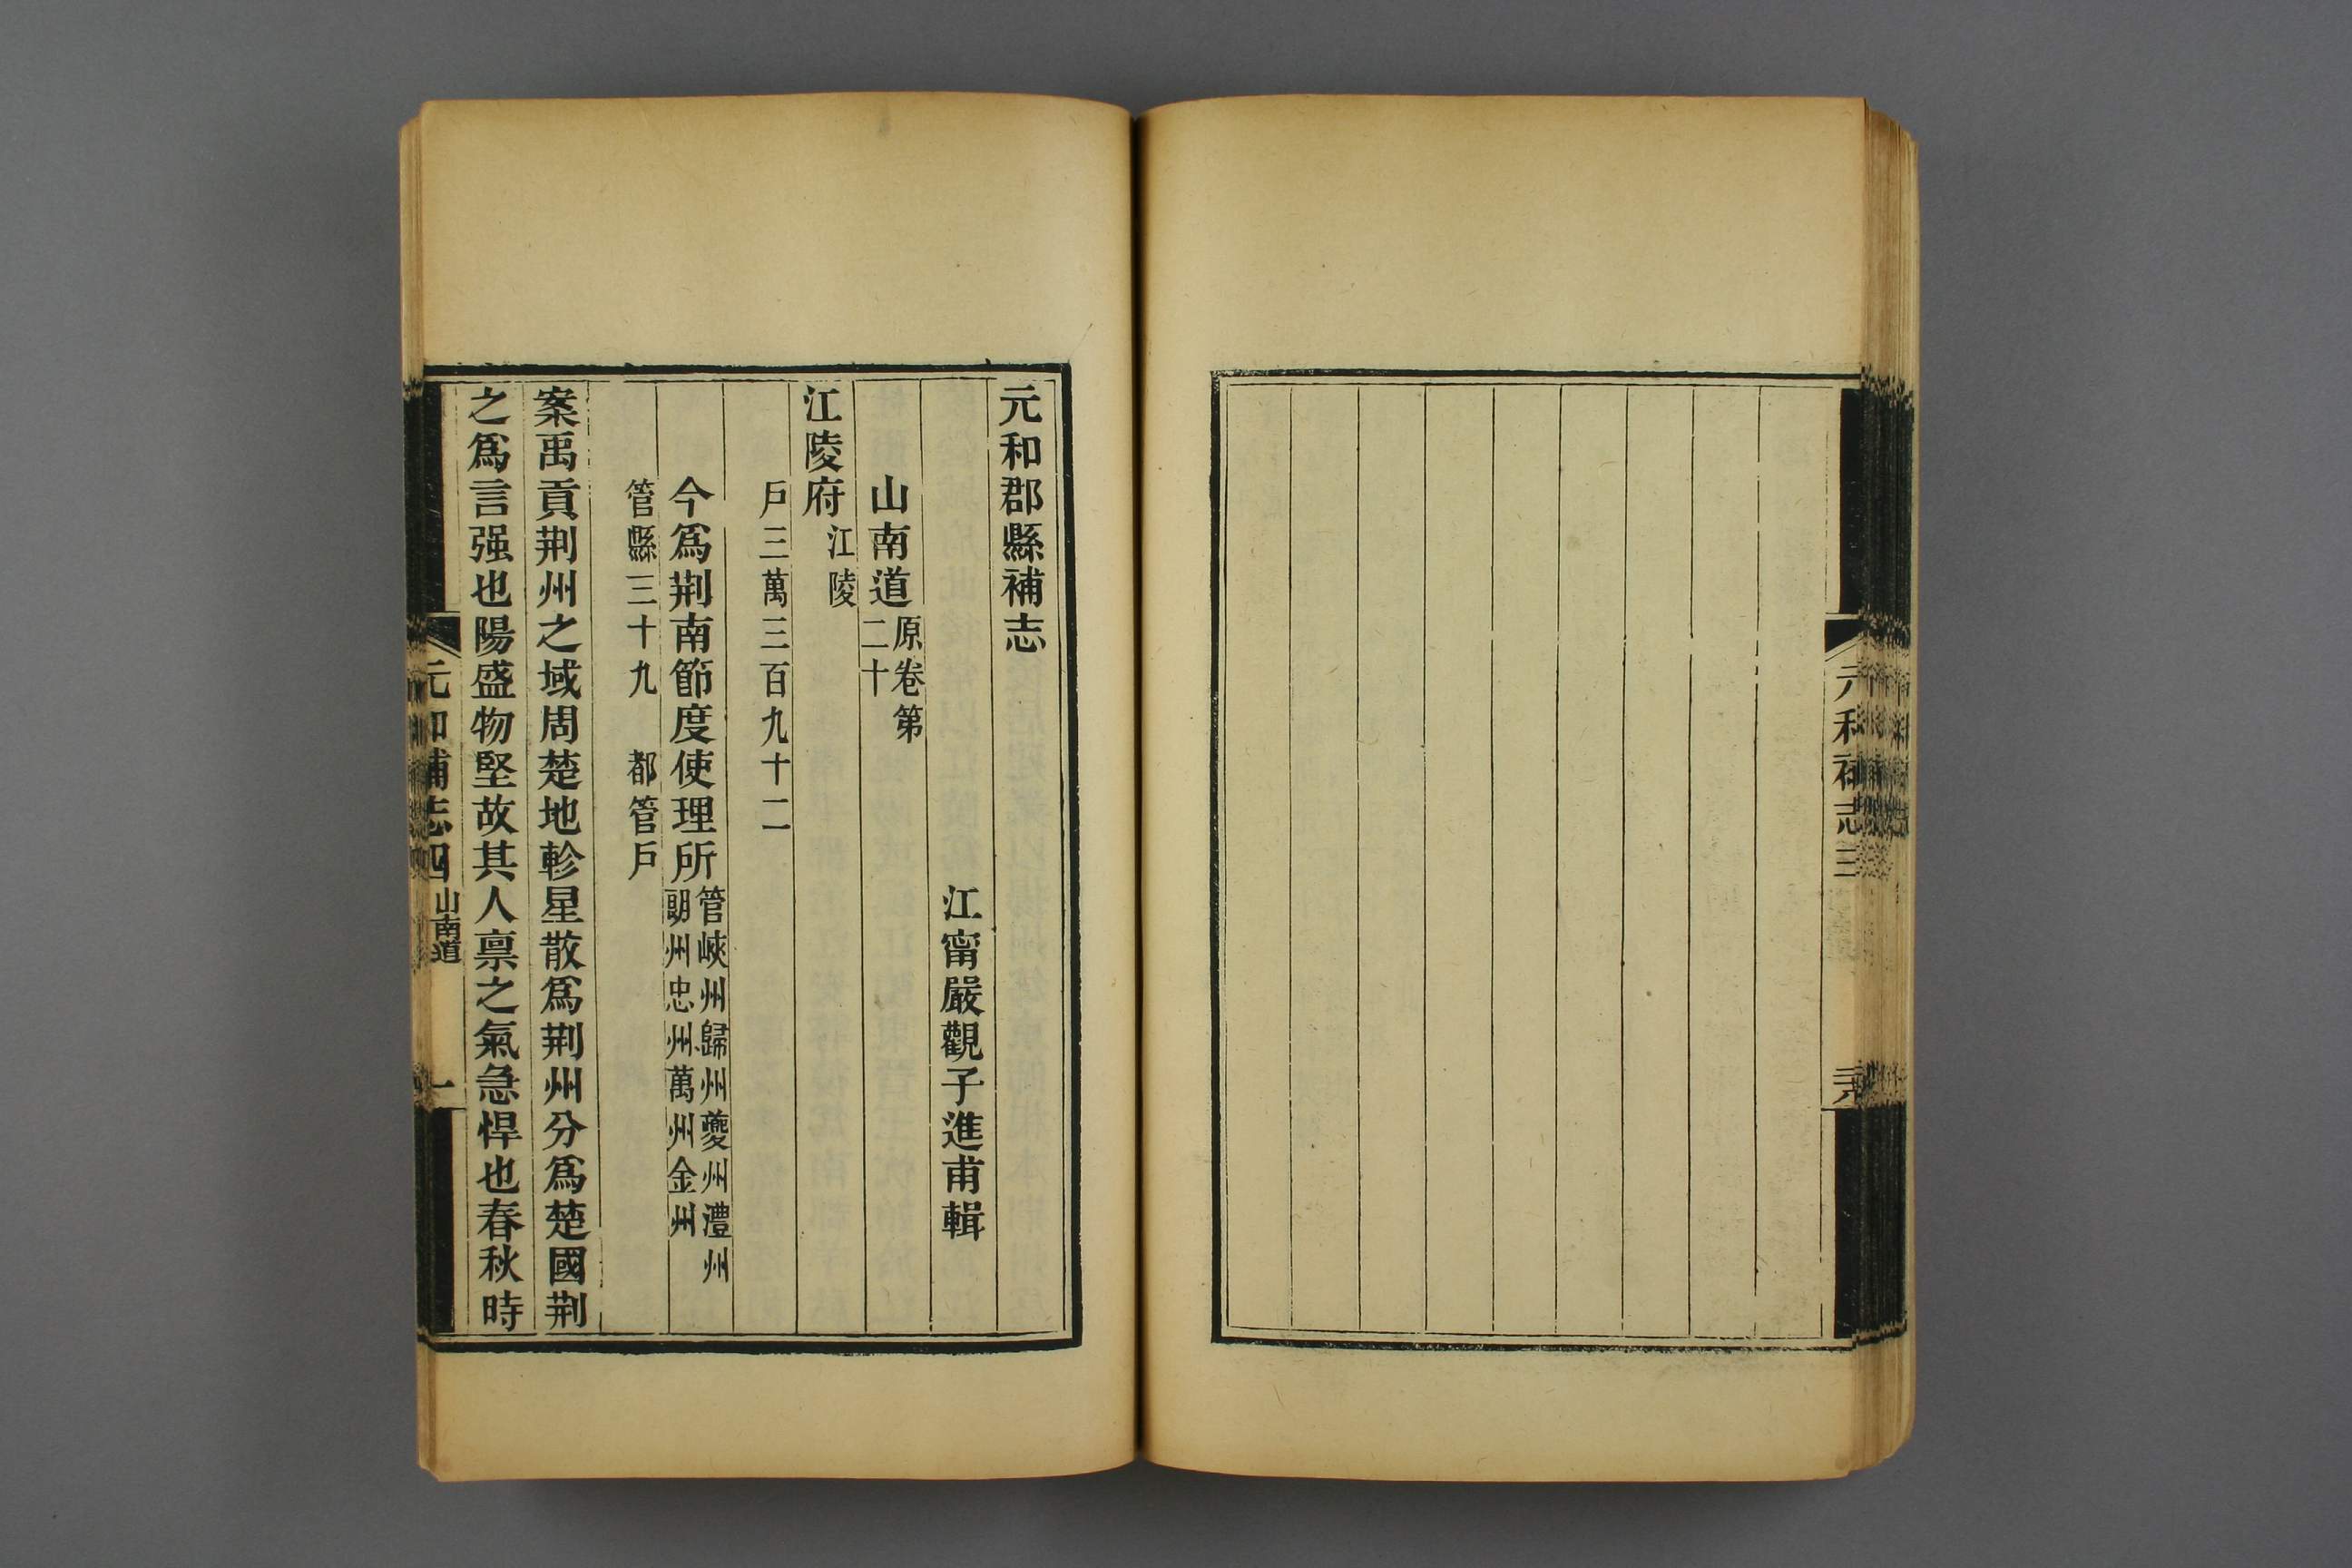 元和補志三
元和郡縣補志
江甯嚴觀子進甫輯
山南道原卷第
二十
江陵府江陵
戶三萬三百九十二
今爲荆南節度使理所管峽州歸州夔州澧州
朗州忠州萬州金州
管縣三十九　都管戶
案禹貢荆州之域周楚地軫星散爲荆州分爲楚國荆
之爲言强也陽盛物堅故其人禀之氣急悍也春秋時
元和補志四 山南道 一